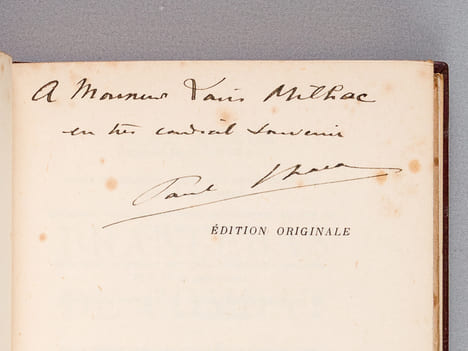 A Monsieur Louis Milhac
en très cordial souvenir
Paul
ÉDITION ORIGINALE